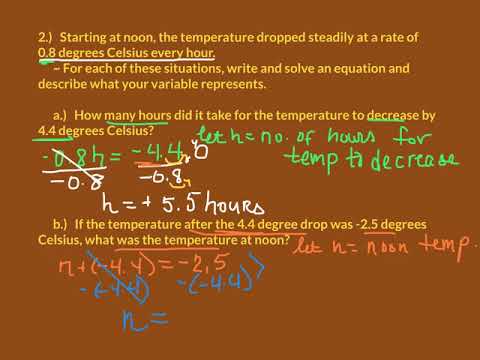 2.) Starting at noon, the temperature dropped steadily at a rate of
0.8 degrees Celsius every hour.
~ For each of these situations, write and solve an equation and
describe what your variable represents.
a.) How many hours did it take for the temperature to decrease by
4.4 degrees Celsius?
let h= no. of hours for
temp to decrease
-0.8h = -4.4.0
-0.8 -0.8
h = + 5.5 hours
b.) If the temperature after the 4.4 degree drop was -2.5 degrees
Celsius, what was the temperature at noon?
let n= noon temp.
n+(-4.4) = -2.5
-(-4.4) -(-4.4)
n =